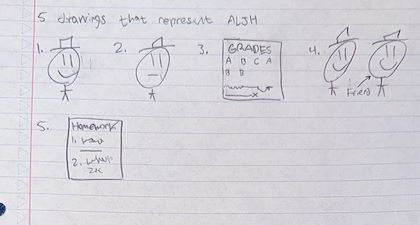 5 drawings that represent ALJH
1. 2. 3. 4.
GRADES
A B C A
B B
Friend
5.
Homework
1.
2.